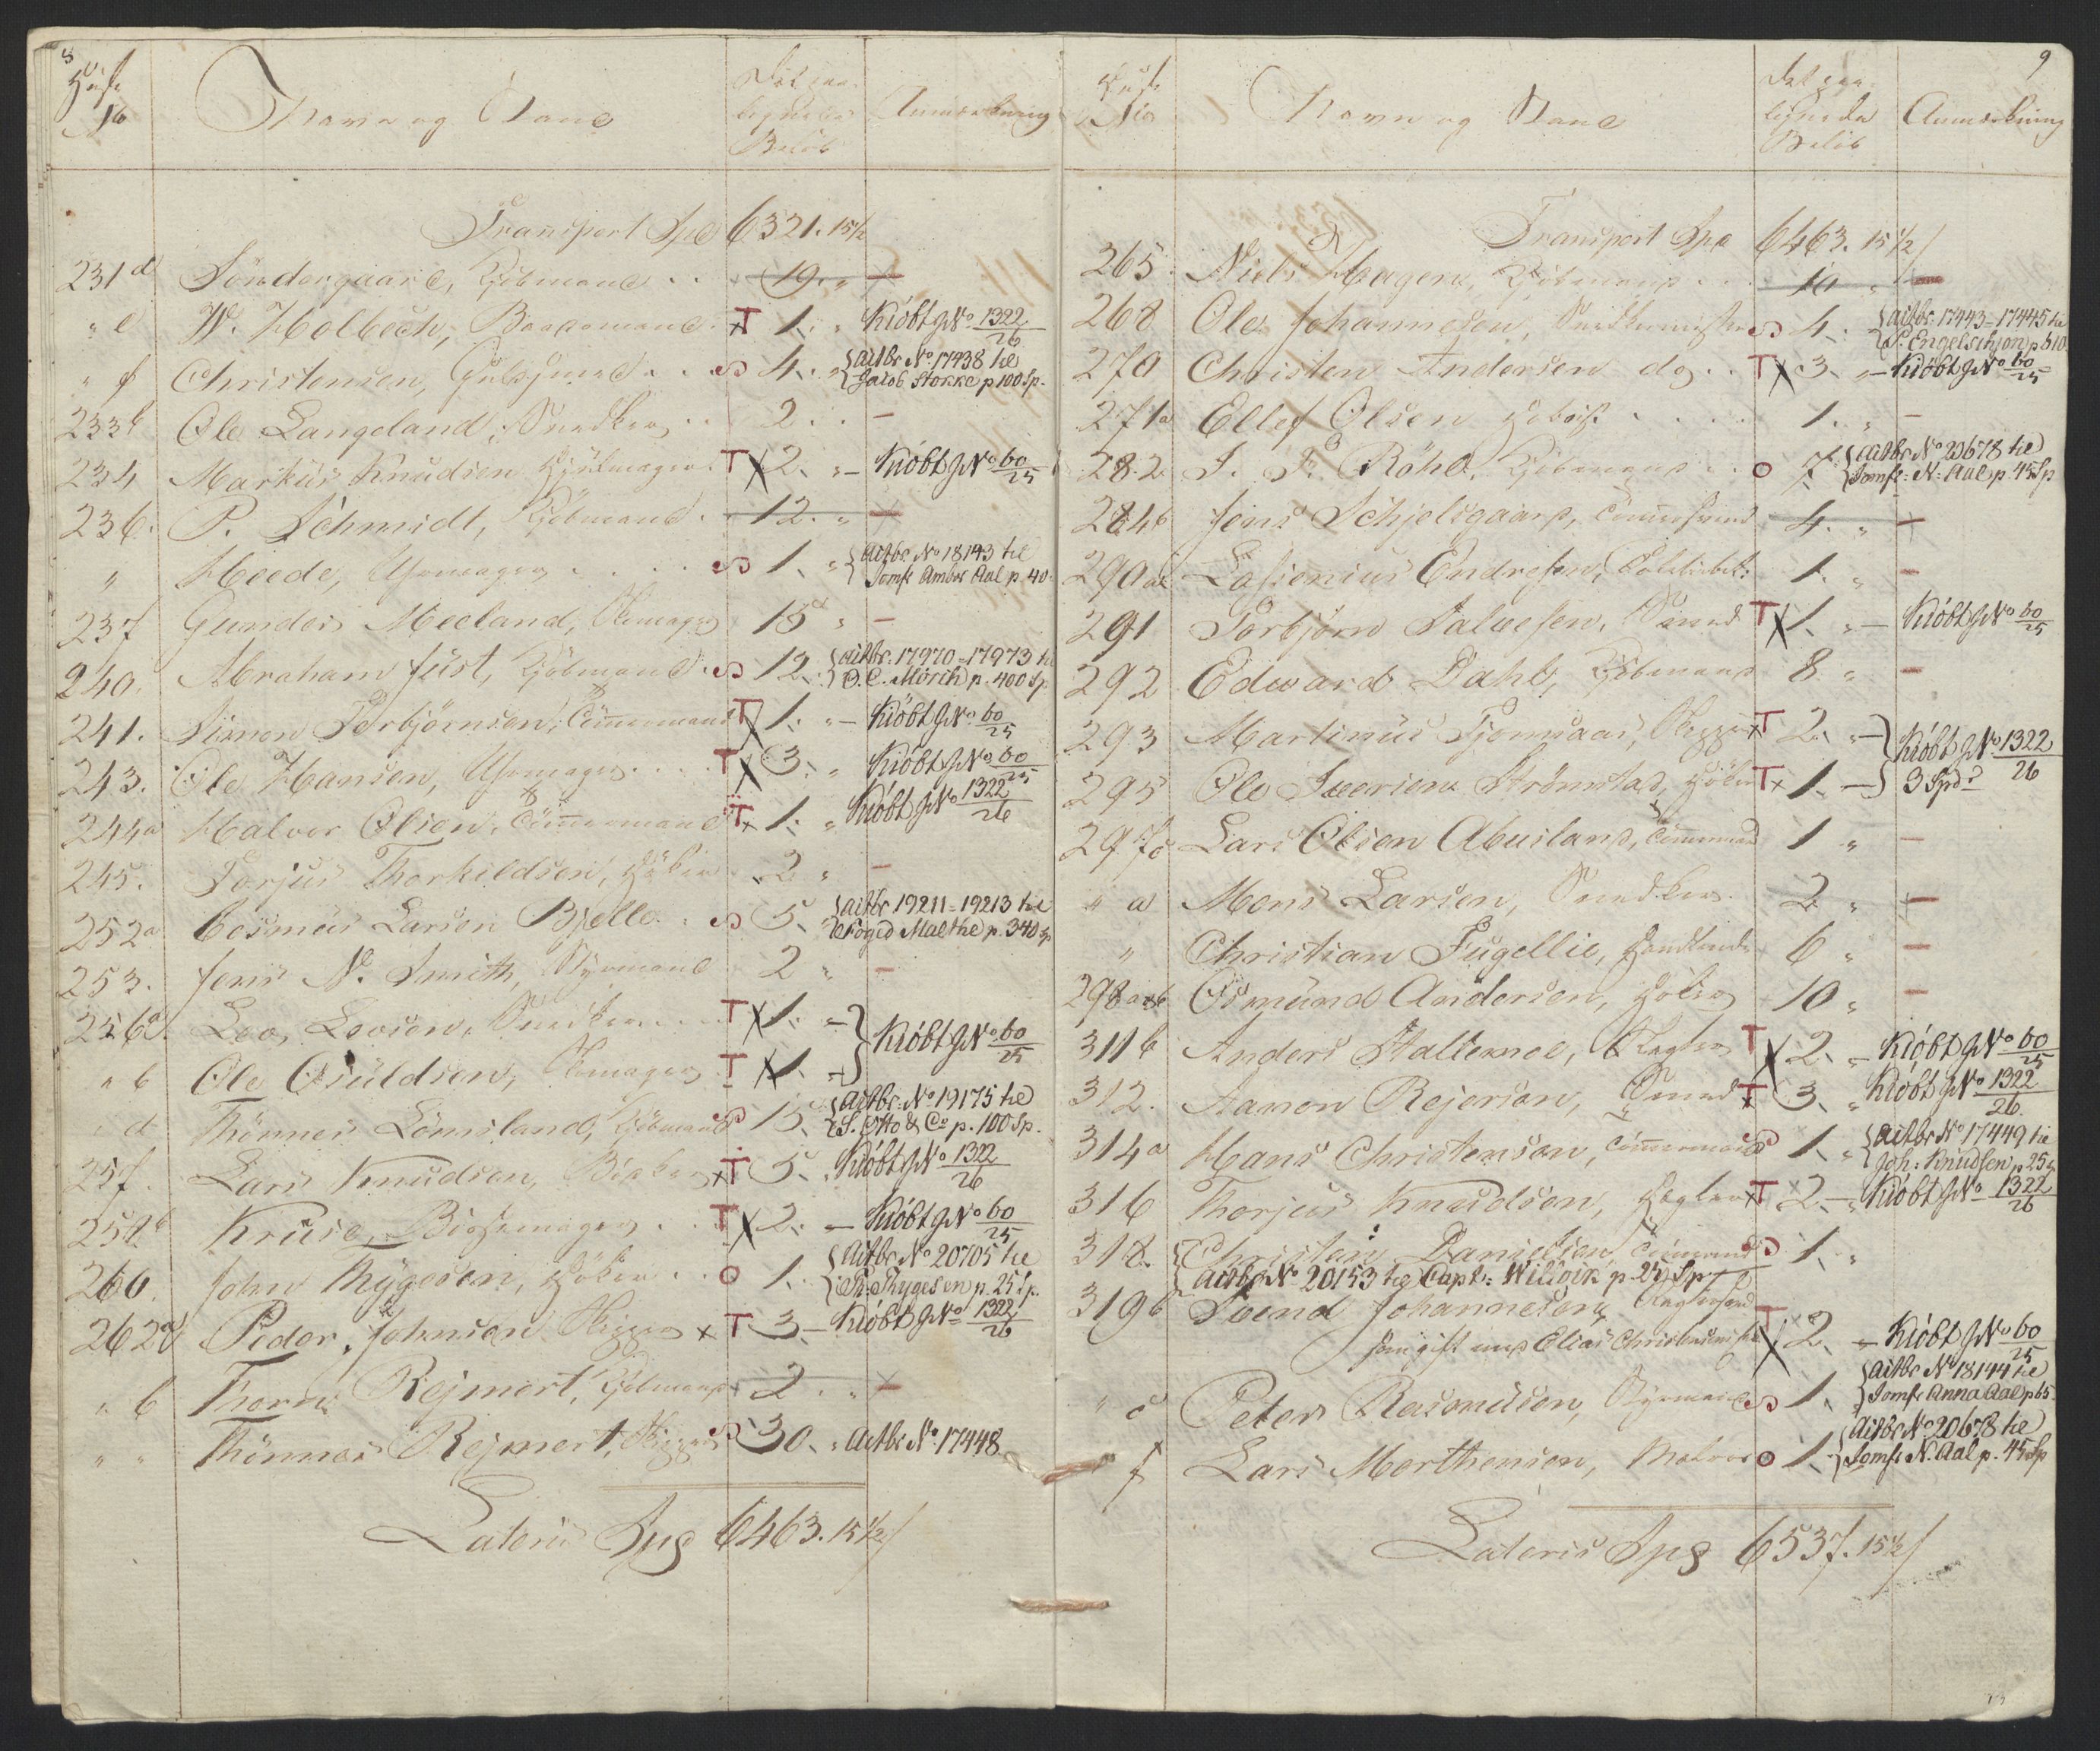 8
Huus
No
Navn og Stand
Det paa-
lignede
Beløb
Anmærkning
Transport Spd 6321. 15½
231 d Söndergaard, Kjöbmand . . 19. „ —
„ e W. Holbech, Baadsmand. T 1. „ Kiöbt J No 1322/26
„ f Christensen, Guldsmed . . 4. „ {Actbr No 17438 til
{Jacob Stokke p 100 Sp.
233 b Ole Langeland, Snedker . . 2. . —
234 Markus Knudsen Hjulmager. T 2. „ — Kiöbt J No 60/25
236. P. Schmidt, Kjöbmand . 12. „ —
„ Heede, Uhrmager . . . . 1. „ {Actbr. No 18143 til
{Jomfr Ambor Aal p. 40.
237 Gunder Meeland, Skomager 15 „ —
240. Abraham Just, Kjöbmand. 12. {Actbr. 17970 = 17973 til
{O. C. Mörch p. 400 Sp.
241. Simon Torbjörnsen, Tömmermand T 1. „ — Kiöbt J No 60/25
243. Ole Hansen, Uhrmager . . . T 3. „ Kiöbt J No 60/25
244 a Halvor Olsen, Tömmermand T 1. „ Kiöbt J No 1322/26
245. Torjus Thorkildsen, Höker . 2 „ —
252 a Cosmus Larsen Bjelle . 5. {Actbr 19211 = 19213 til
{Foged Malthe p. 340 Sp
253. Jens N. Smith, Styrmand 2 „ —
256 a. Leo, Levsen, Snedker . . . T 1. „ — }
„ b Ole Osuldsen, Skomager T 1. „ } Kiöbt J No 60/25
„ d Thönnes Lömsland, Kjöbmand 15. {Actbr: No 19175 til
{S. Otto & Co p. 100 Sp.
257. Lars Knudsen, Bödker T 5. „ Kiöbt J No 1322/26
258 b Kruse, Börstemager . . T 2. „ — Kiöbt J No 60/25
260. John Thygesen, Höker . . O 1. {Actbr No 20705 til
{Th. Thygesen p. 25 Sp.
262 a Peder Johnsen Skipper T 3. — Kiöbt J No 1322/26
„ b Thorn Rejmert, Kjöbmand 2. „ —
„ „ Thönnes Rejmert, Skipper 30. „ Actbr No 17448
Lateris Spd 6463. 15½/
9
Huus
No
Navn og Stand
Det paa-
lignede
Beløb
Anmærkning
Transport Spd 6463. 15½/
265 Niels Hagen, Kjöbmand . . 10 „ —
268 Ole Johannesen, Snedkermester 4. {Actbr. 17443 = 17445 til
{P. Engelschjon p 510
270 Christen Andersen do . . T 3. „ — Kiöbt J No 60/25
271 a Ellef Olsen . . . . 1. „ —
282 J. P. Röhl, Kjöbmand . . O 7. {Actbr No 20678 til
{Jomfr: N: Aal p. 45 Sp
284 b Jens Schjelsgaard, Tömmermand 4. „ —
290 a Lasienius Endresen, 1. „ —
291 Torbjörn Salvesen, Smed T 1. „ — Kiöbt J No 60/25
292 Edward Dahl, Kjöbmand 8 „ —
293 Martinus Tjomsaas, Skipper T 2. „ — }
295 Ole Iversen Strömstad, Höker T 1. — } Kiöbt J No 1322/26
3 Spd
297 c Lars Olsen Abusland, Tömmermand 1 „ —
„ a Mons Larsen, Snedker. 2 „ —
„ Christian Fugellie, Handlende 6 „ —
298 a & b Osmund Andersen, Höker 10 „ —
311 b Anders Haltemoe, T 2. „ Kiöbt J No 60/25
312. Aanon Rejersen, Smed T 3. „ Kiöbt J No 1322/26
314 a Hans Christensen, Tömmermand 1. „ {Actbr No 17449 til
{Joh: Knudsen p 25 Sp
316 Thorjus Knudsen, T 2. — „ Kiöbt J No 1322/26
318. {Christen Danielsen, Tömmermand 1. „
{Actbr No 20153 til Capt: p. 25 Sp.
319 b Svend Johannesen,
som gift med Elias Christensens T 2. „ — Kiöbt J No 60/25
„ c Peter Rasmusen, Styrmand 1. {Actbr No 18144 til
{Jomfr Anna Aal p 65.
„ f Lars Morthensen, Matros O 1. {Actbr No 20678 til
{Jomfr N. Aal p. 45 Sp
Lateris Spd 6537. 15½/